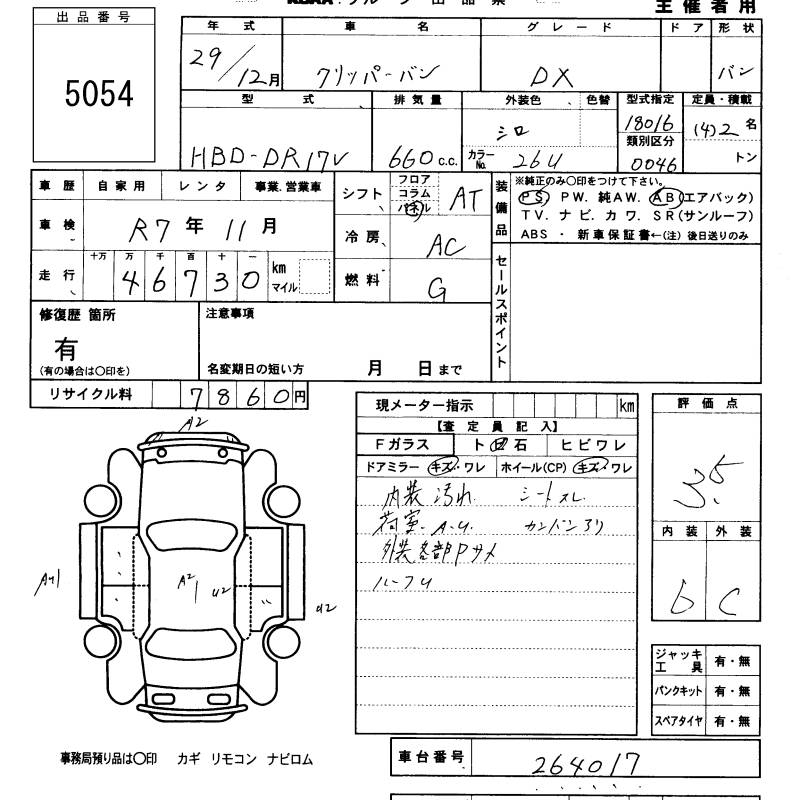 主催者用
出品番号
5054
年式 車名 グレード ドア 形状
29/12月 クリッパーバン DX バン
型式 排気量 外装色 色替 型式指定 定員・積載
HBD-DR17V 660c.c. シロ カラーNo. 26U 18016 (4)2名
類別区分
0046 トン
車歴 自家用 レンタ 事業.営業車
車検 R7年11月
走行 十万 万 千 百 十 一
46730 km マイル
シフト フロア コラム パネル AT
冷房 AC
燃料 G
装備品
※純正のみ〇印をつけて下さい。
PS PW. 純AW. AB(エアバック)
TV. ナビ. カワ. SR(サンルーフ)
ABS ・ 新車保証書←(注) 後日送りのみ
セールスポイント
修復歴 箇所
有
(有の場合は〇印を)
注意事項
名変期日の短い方 月 日まで
リサイクル料 7860円
現メーター指示 km
【査定員記入】
Fガラス ト日石 ヒビワレ
ドアミラー キズ・ワレ ホイール(CP) キズ・ワレ
内装 汚れ. シートスレ
荷室. A.U. カンバンアリ
外装各部Pサメ
ルーフU
評価点
3.5
内装 外装
b C
A2
A41
A2
U2
U2
ジャッキ工具 有・無
パンクキット 有・無
スペアタイヤ 有・無
事務局預り品は〇印 カギ リモコン ナビロム
車台番号 264017